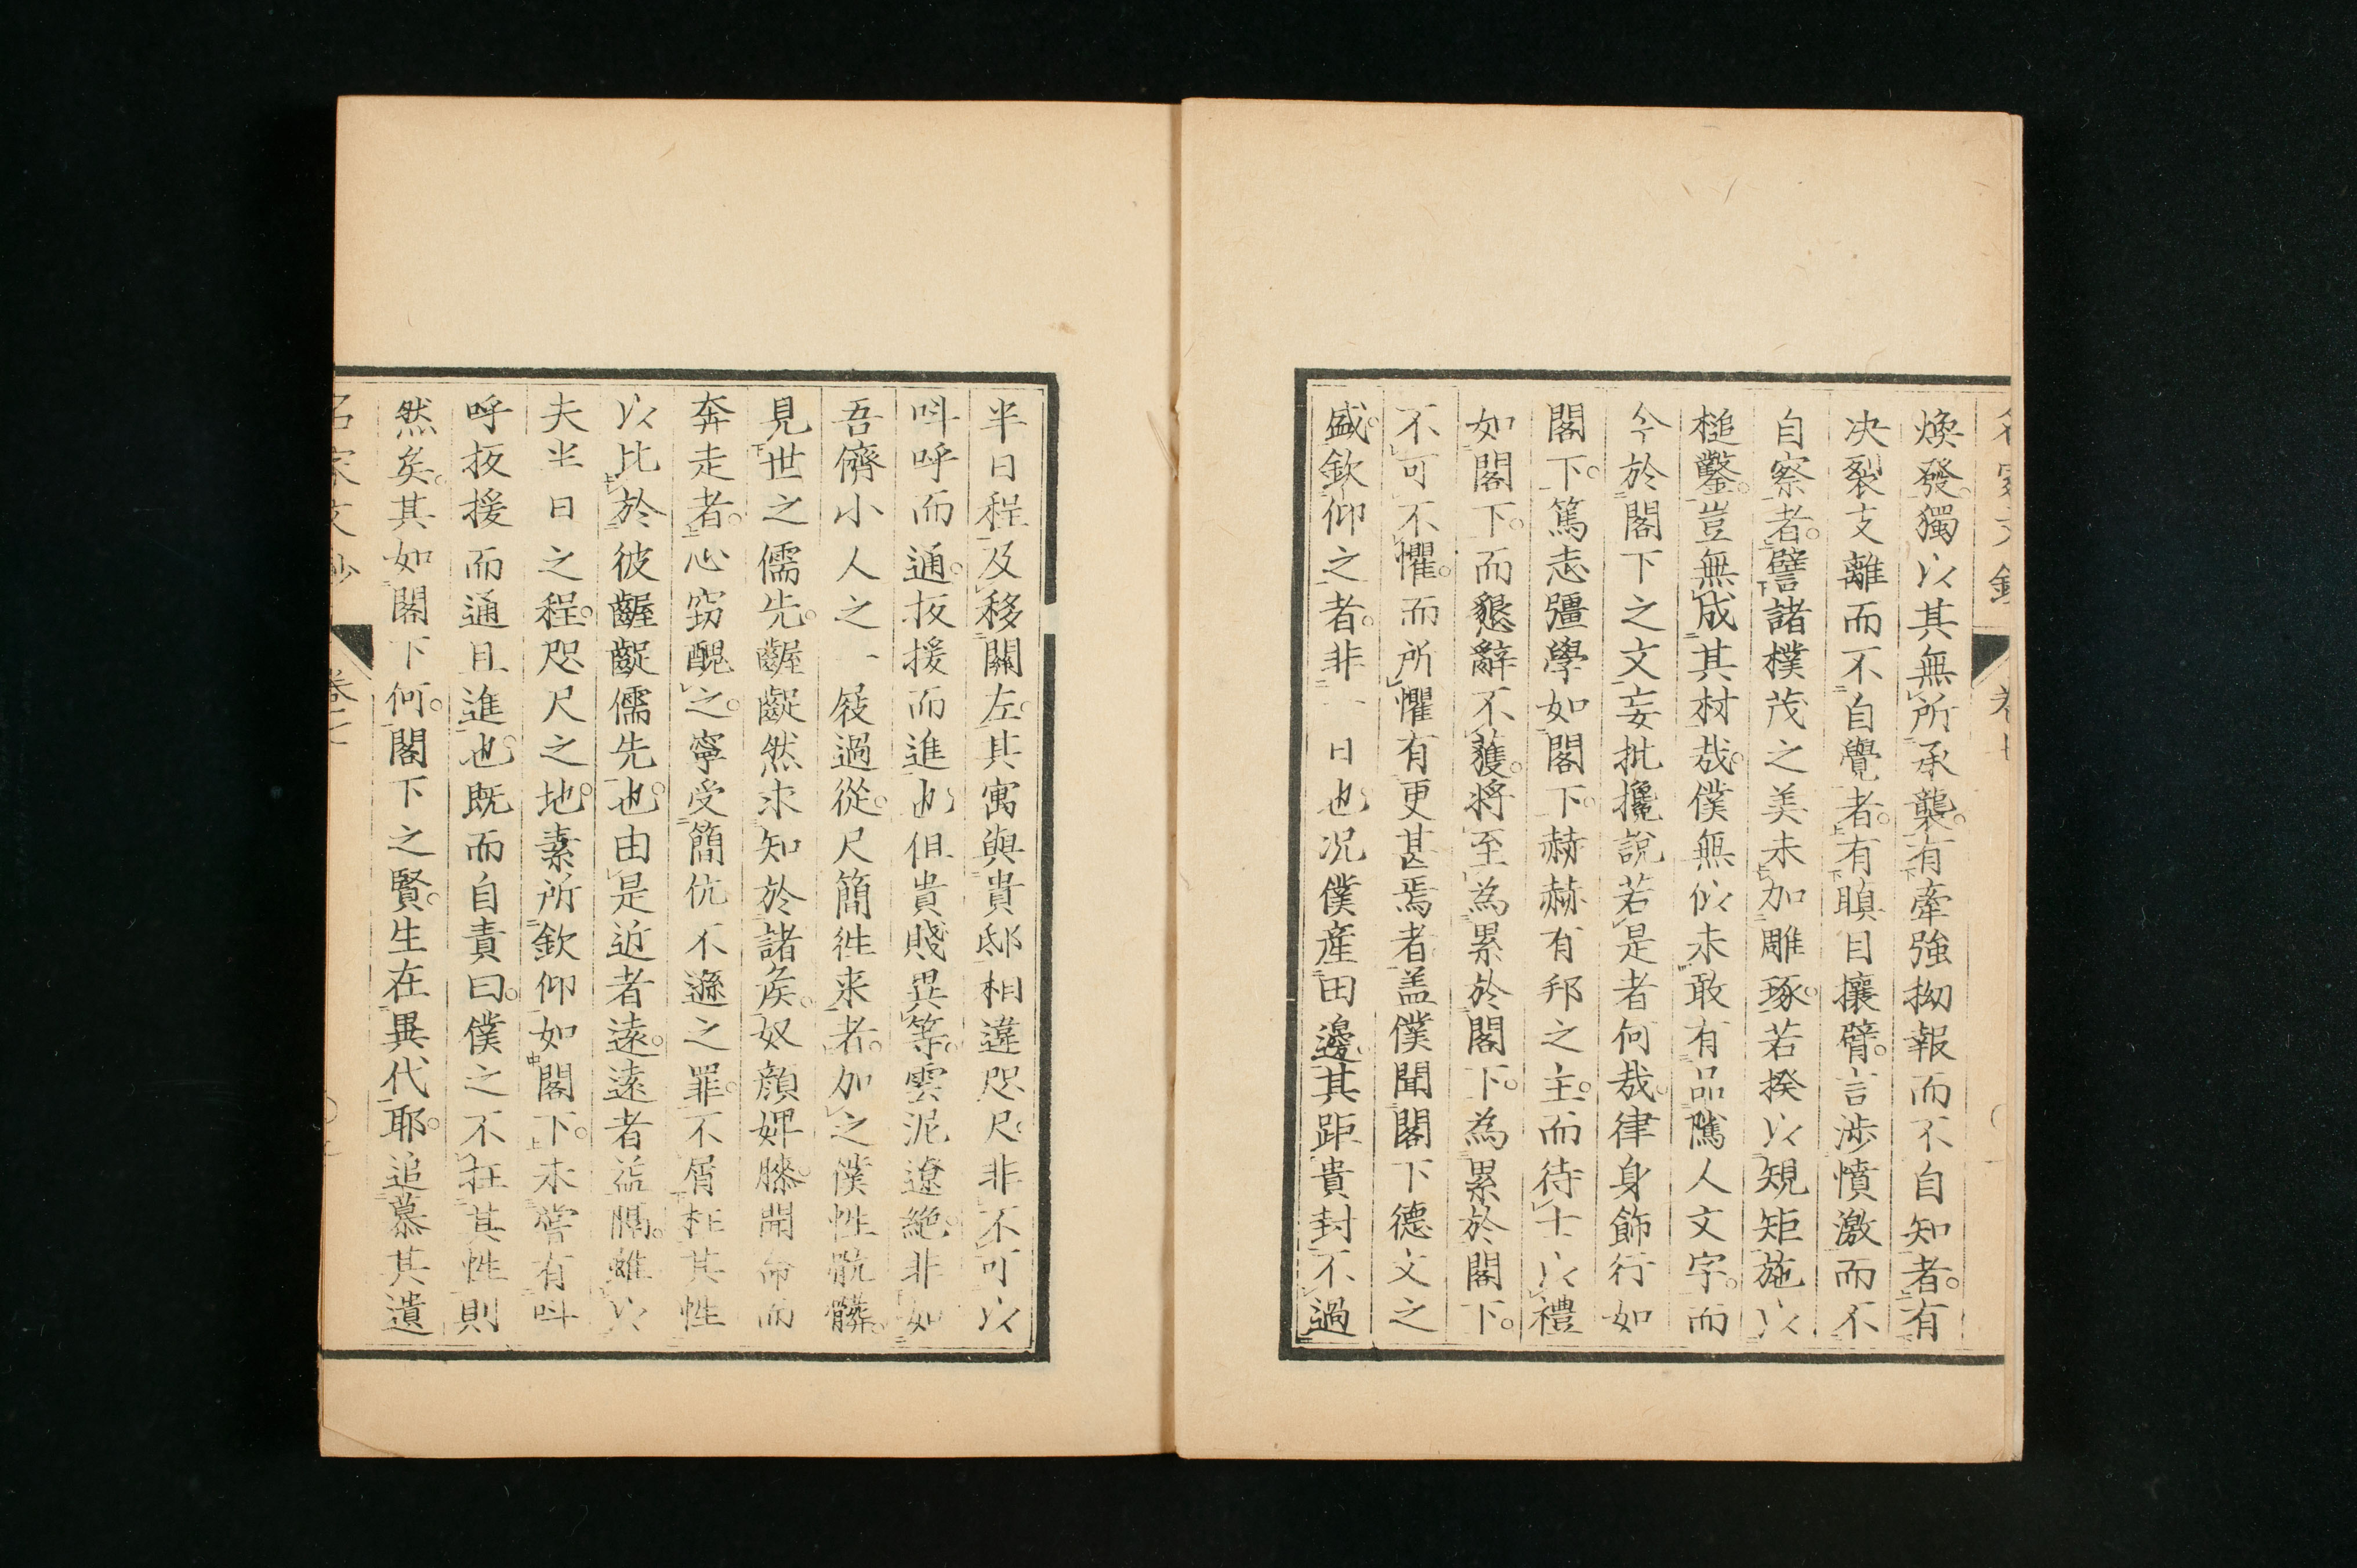 煥發。獨以其無所承襲。有牽強拗報而不自知者。有
决裂支離而不自覺者。有瞋目攘臂。言涉憤激而不
自察者。譬諸樸茂之美未加雕琢。若揆以規矩施以
槌鑿。豈無成其材哉。僕無似未敢有品隲人文字。而
今於閣下之文妄批攙說若是者何哉。律身飾行如
閣下。篤志彊學如閣下。赫赫有邦之主。而待士以禮
如閣下。而懇辭不獲。將至為累於閣下。為累於閣下。
不可不懼。而所懼有更甚焉者。盖僕聞閣下德文之
盛。欽仰之者。非一日也况僕産田邊其距貴封不過
半日程及移關左。其寓與貴邸相違咫尺。非不可以
呌呼而通。扳援而進也但貴賤異等。雲泥遼絶。非如
吾儕小人之一屐過從。尺簡徃来者。加之僕性骯髒。
見世之儒先。齷齪然求知於諸矦。奴顔婢膝。開命而
奔走者。心窃醜之。寧受簡伉不遜之罪。不屑枉其性
以比於彼齷齪儒先也。由是近者遠。遠者益隔。雖以
夫半日之程。咫尺之地。素所欽仰如閣下。未嘗有呌
呼扳援而通且進也。既而自責曰。僕之不枉其性則
然矣。其如閣下何。閣下之賢。生在異代耶。追慕其遺
名家文抄 卷之